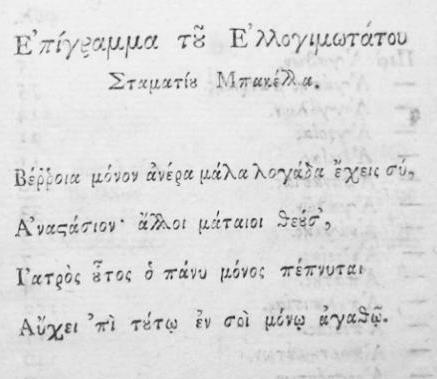 Ε᾿πίγραμμα τȣ῀ Ε᾿λλογιμωτάτου
Σταματίȣ Μπακέλλα.
Βέῤῥοια μόνον ἀνέρα μάλα λογάδα ἔχεις σύ,
Α᾿ναϛάσιον· ἄλλοι μάταιοι
Ι᾿ατρὸς ȣ̃τος ὁ πάνυ μόνος πέπνυται
Αὔχει ᾿πὶ τȣ́τῳ ἐν σοὶ μόνῳ ἀγαθῷ.